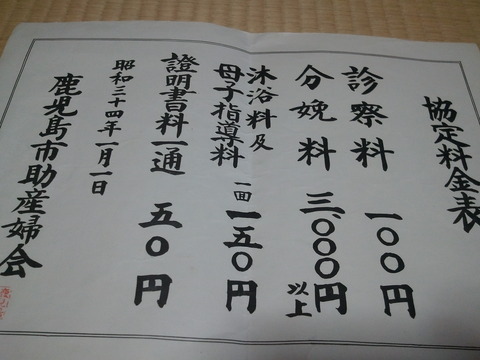 協定料金表
診察料 一〇〇円
分娩料 三、〇〇〇円以上
沐浴料及
母子指導料 一回 一五〇円
證明書料一通 五〇円
昭和三十四年一月一日
鹿児島市助産婦会